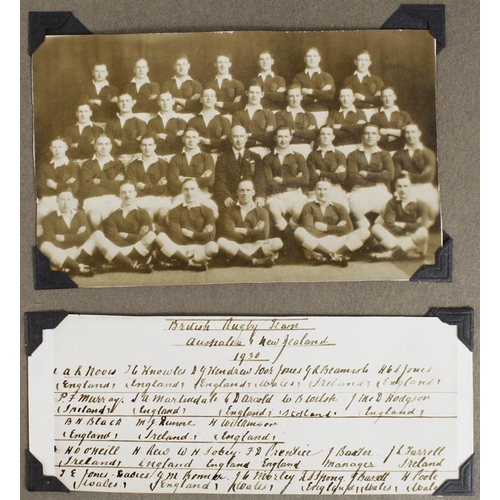 British Rugby Team
Australia & New Zealand
1930
T C Knowles Ivor Jones G R Beamish H C S Jones
(England) (England) (England) (Wales) (Ireland) (England)
P F Murray S A Martindale D W B Welsh J McD Hodgson
(Ireland) (England) (England) (Scotland) (England)
B H Black M J Dunne H Wilkinson
(England) (Ireland) (England)
H O O'Neill H Rew W H Sobey F D Prentice J Baxter J L Farrell
(Ireland) England England England Manager Ireland
T E Jones-Davies G M Bonner J C Morley D S J Bassett H Poole
(Wales) (England) (Wales) (Wales) (Wales)